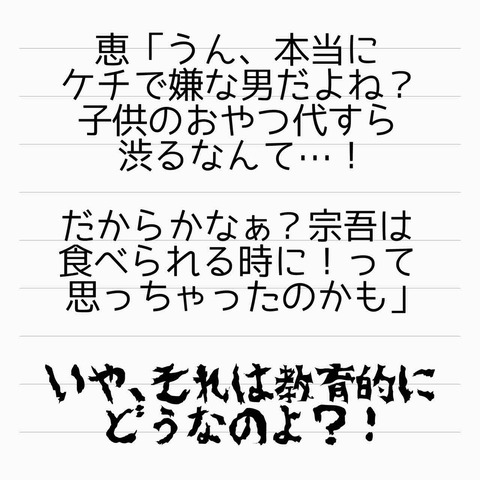 恵「うん、本当に
ケチで嫌な男だよね？
子供のおやつ代すら
渋るなんて…！
だからかなぁ？宗吾は
食べられる時に！って
思っちゃったのかも」
いや、それは教育的に
どうなのよ？！